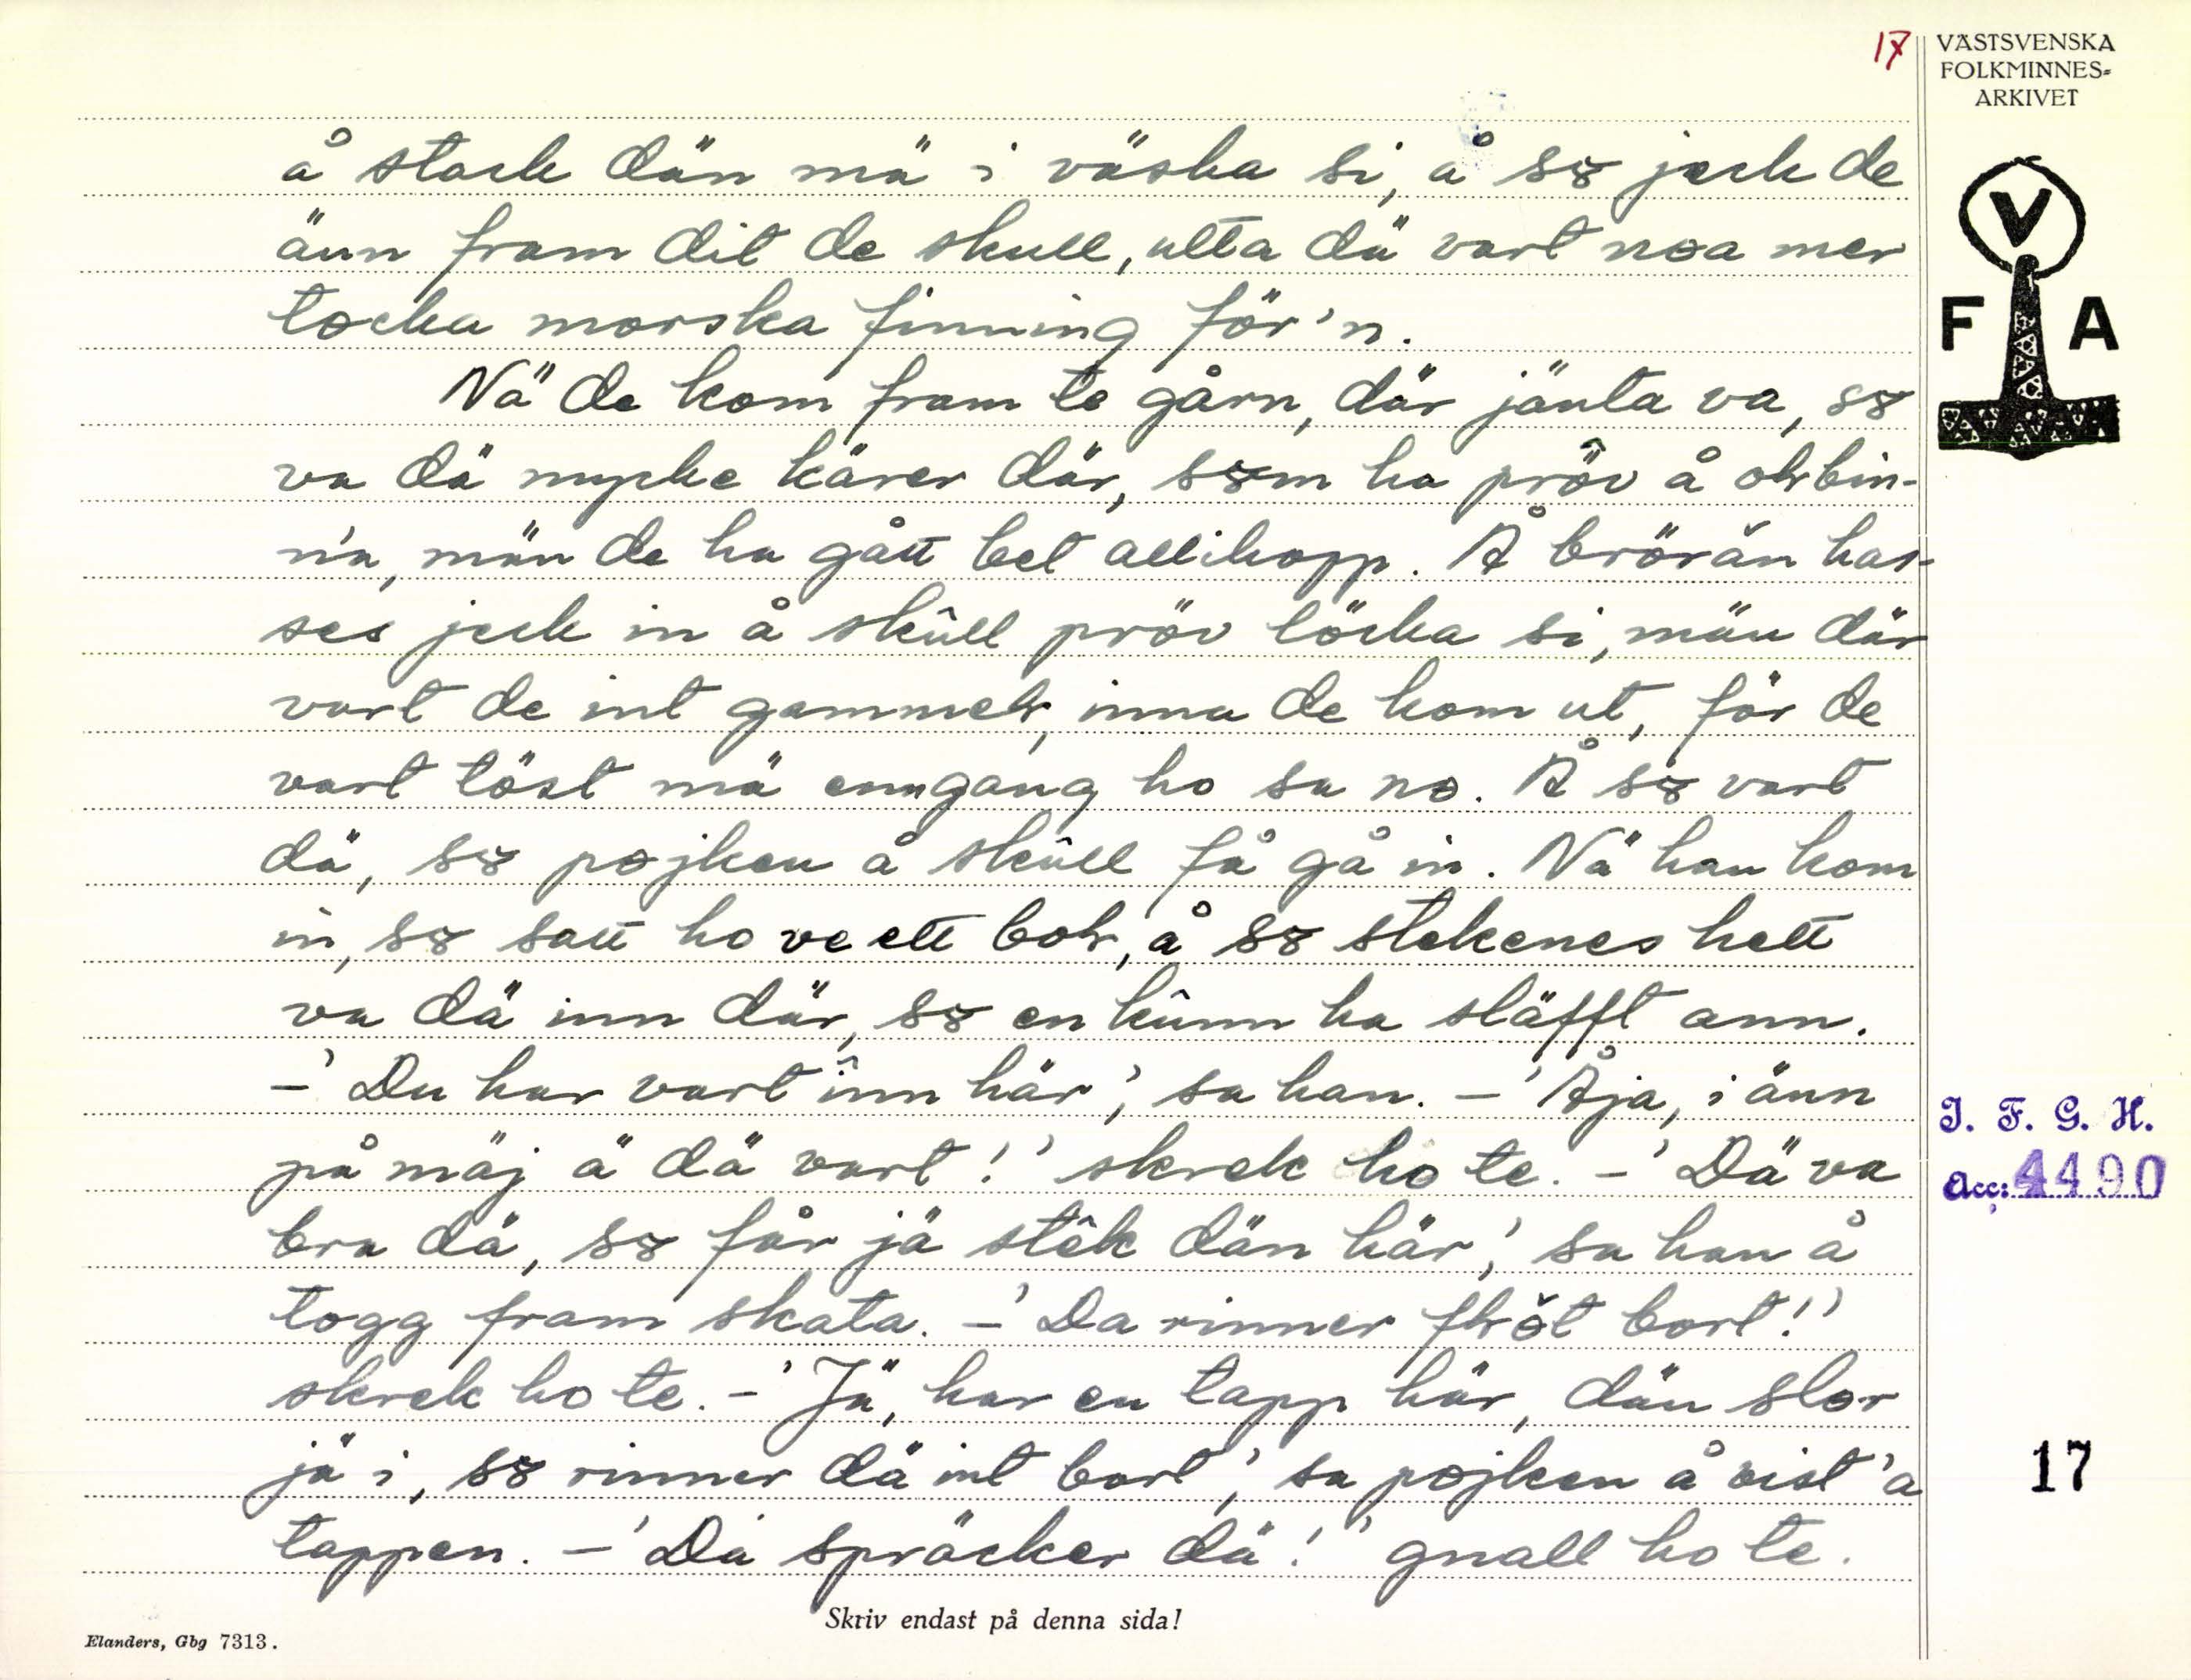 17
VÄSTSVENSKA
FOLKMINNES-
ARKIVET
V
F A
å stack dän mä i väska si, å sȣ jeck de
änn fram dit de skull, utta dä vart noa mer
tocka morska finning för'n.
Nä de kom fram te gårn, där jänta va, sȣ
va dä mycke kärer där, sȣm ha prȫv å
n'a, män de ha gått bet allihopp. Å brörän has-
ses jeck in å skûll pröv löcka si, män där
vart de int gammeh, inna de kom ut, för de
vart töst mä enngang ho sa no. Å sȣ vart
dä, sȣ pojken å skûll få gå in. Nä han kom
in, sȣ satt ho ve ett boh, å sȣ stekenes hett
va dä inn där, sȣ en kûnn ha släfft ann.
–'Du har vart înn här', sa han. –'Åja, i änn
på mäj ä dä vart!' skrek ho te. –'Dä va
bra dä, sȣ får jä stêk dän här', sa han å
togg fram skata. –'Da rinner fhöt bort!'
skrek ho te. –'Jä, har en tapp här, dän slor
jä i, sȣ rinner dä int bort', sa pojken å vist 'a
tappen. –'Då spräcker dä!' gnall ho te.
I. F. G. H.
Acc: 4490
17
Skriv endast på denna sida!
Elanders, Gbg 7313.